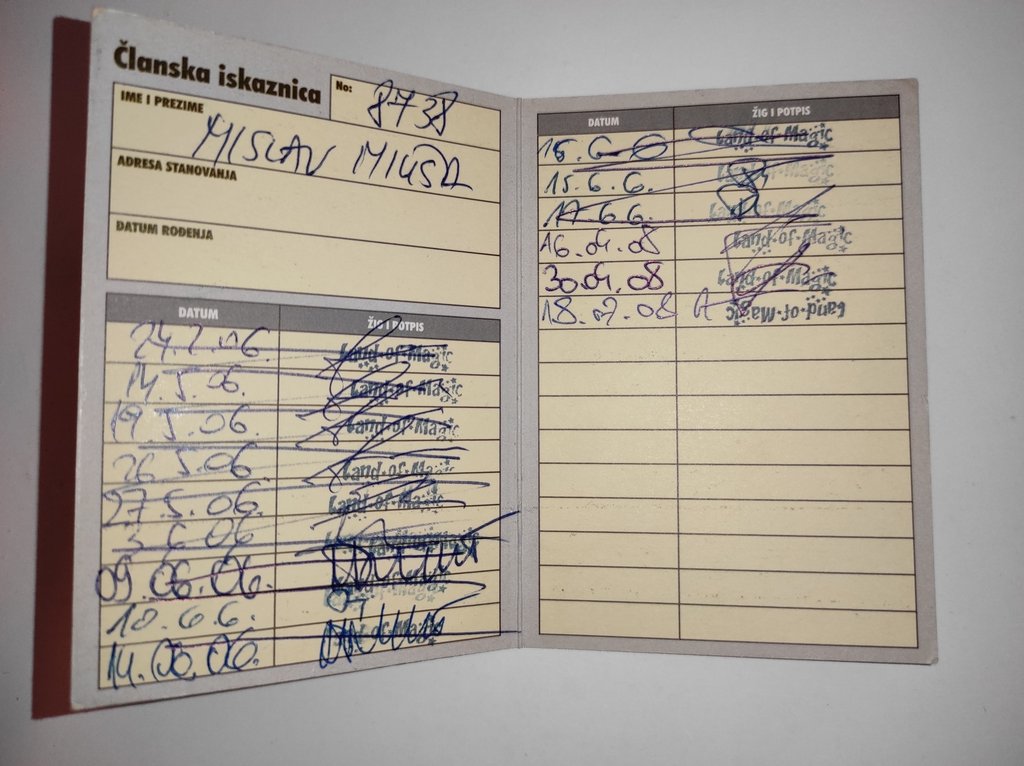 Članska iskaznica
No: 8738
IME I PREZIME
MISLAV MIUŠA
ADRESA STANOVANJA
DATUM ROĐENJA
DATUM ŽIG I POTPIS
24.2.06. Land·of·Magic
14.5.06. Land·of·Magic
19.5.06. Land·of·Magic
26.5.06. Land·of·Magic
27.5.06. Land·of·Magic
3.6.06
09.06.06.
10.6.6.
14.06.06. of·Magic
DATUM ŽIG I POTPIS
Land·of·Magic
15.6.6. Land·of·Magic
17.6.6. Land·of·Magic
16.04.08 Land·of·Magic
30.04.08 Land·of·Magic
18.07.08 Land·of·Magic